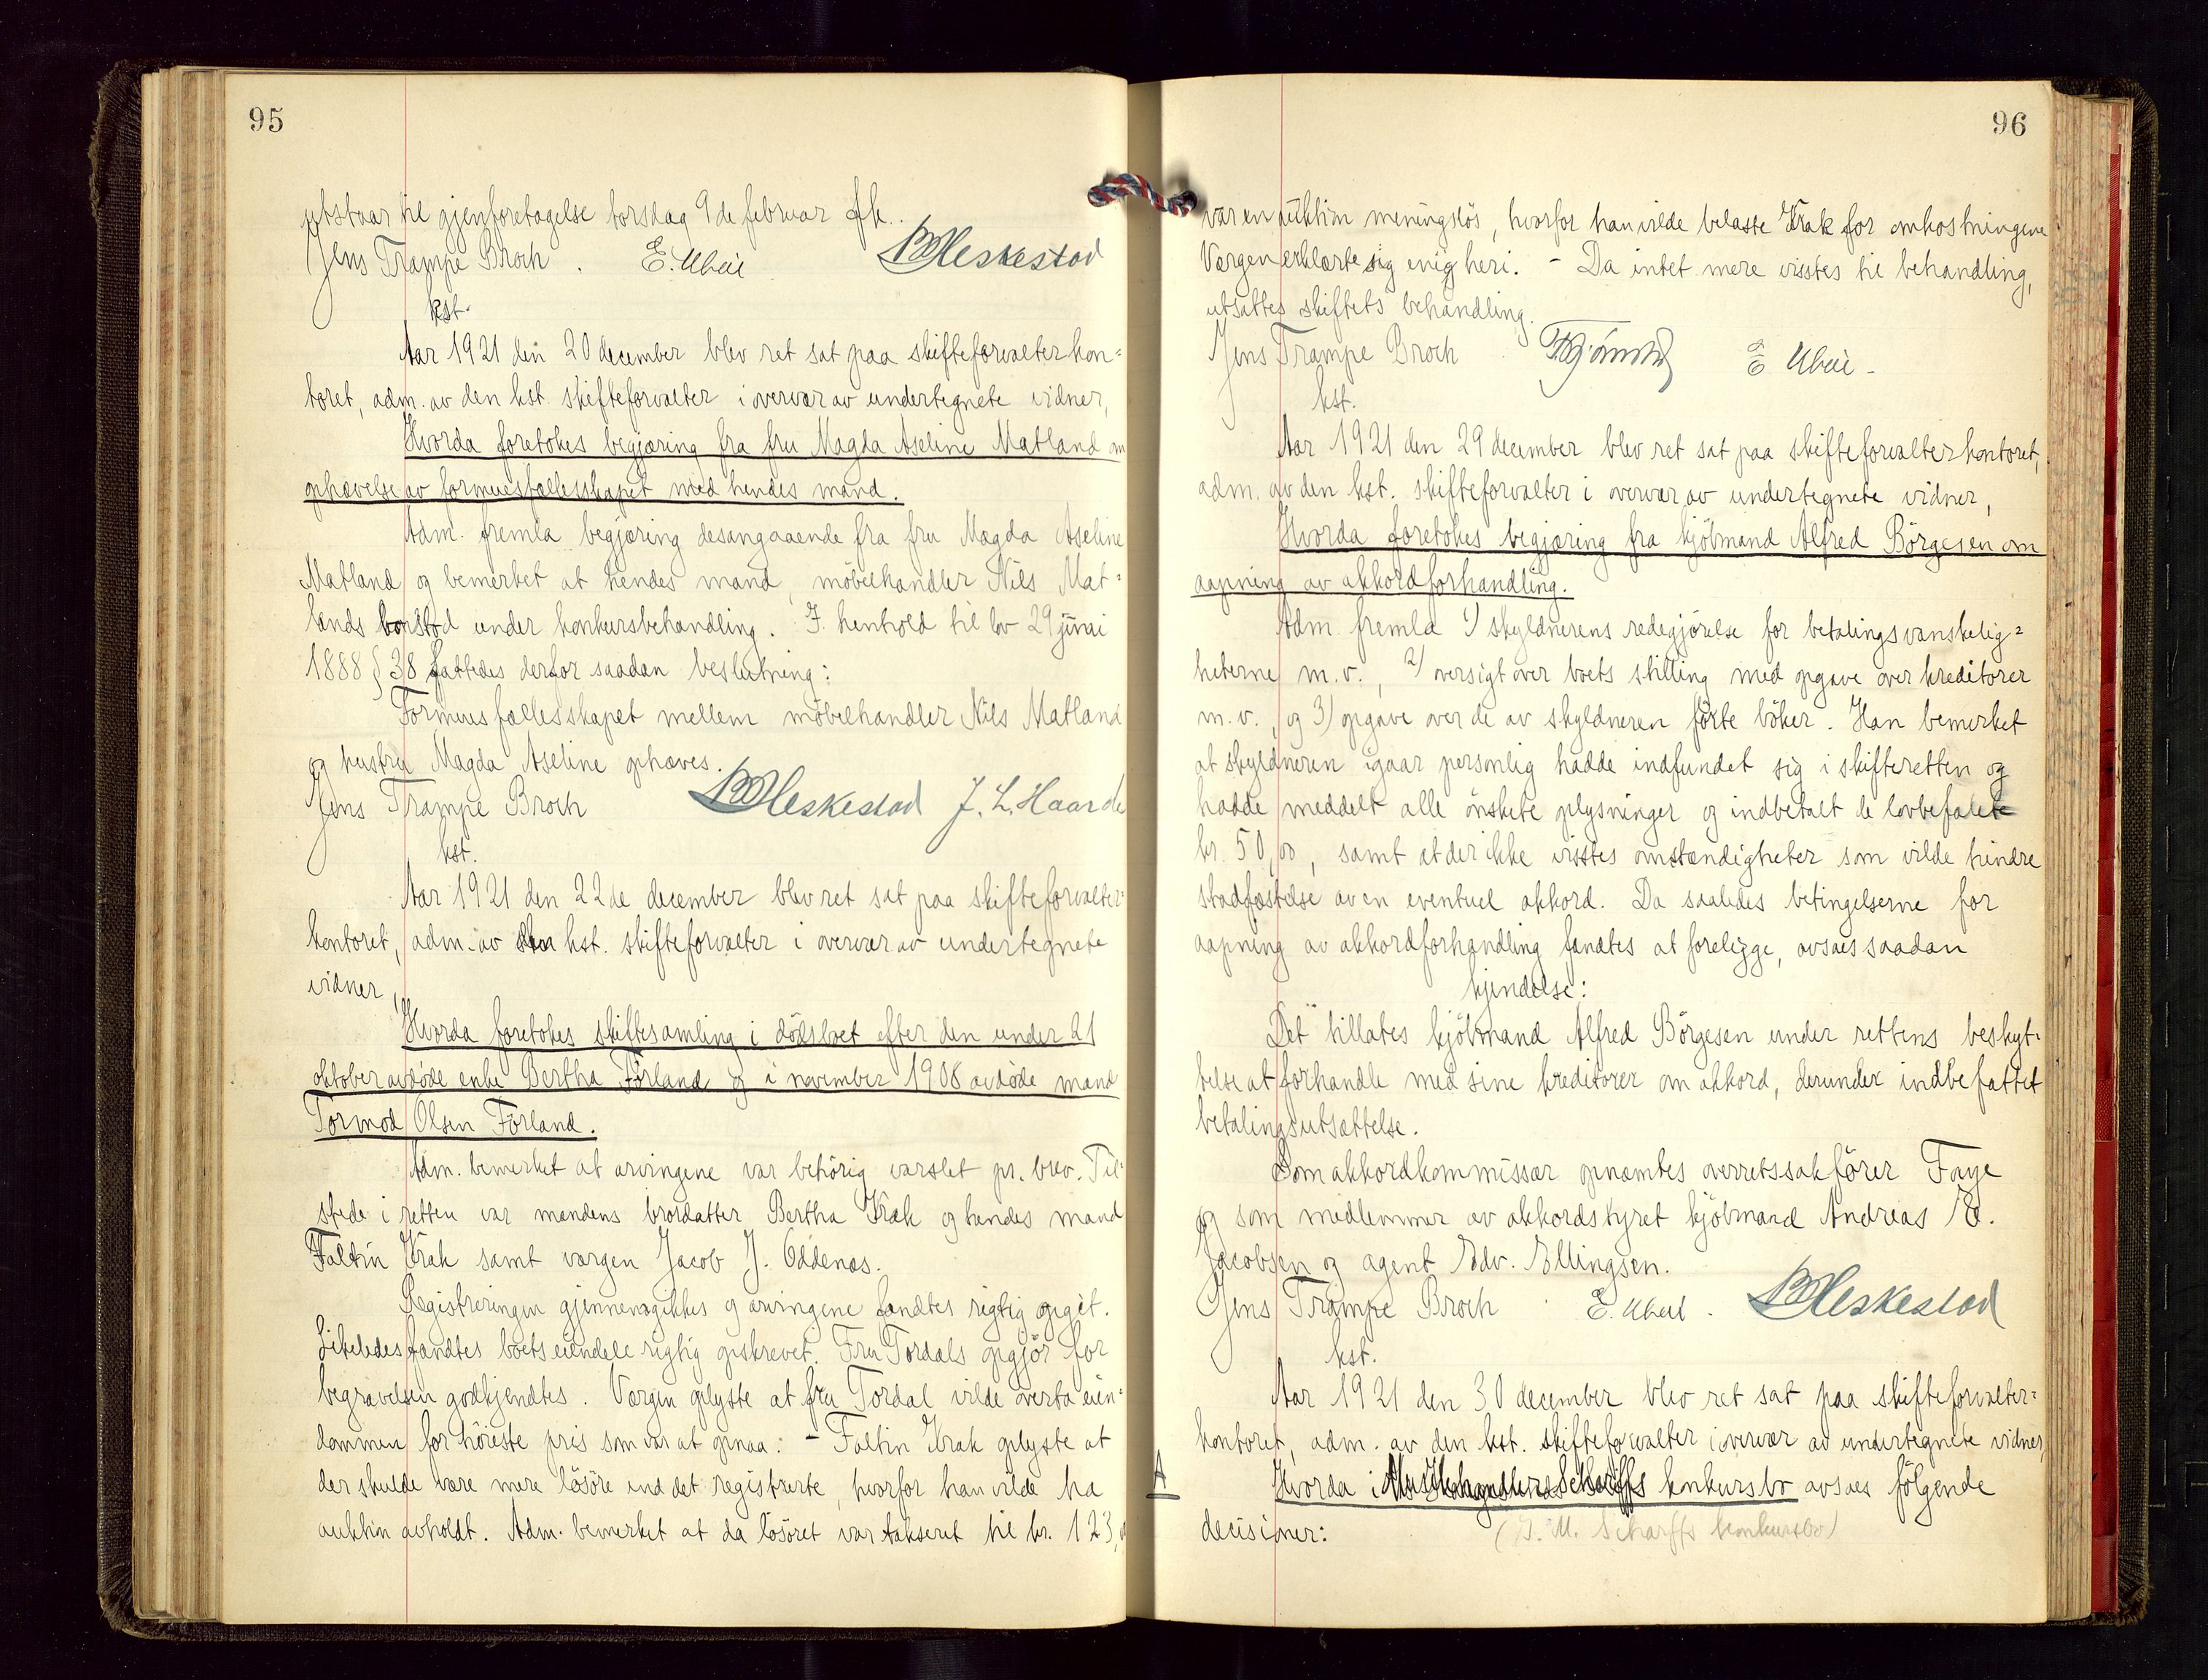 95
utstaar til gjenforetagelse torsdag 9de februar fk..
Jens Trampe Broch . E. Ubeil BMHeskestad
kst.
Aar 1921 den 20 december blev ret sat paa skifteforvalterkon=
toret, adm. av den kst. skifteforvalter i overvær av undertegnete vidner,
Hvorda foretokes begjæring fra fru Magda Aseline Matland om
ophævelse av formuesfællesskapet med hendes mand.
Adm. fremla begjæring desangaaende fra fru Magda Aseline
Matland og bemerket at hendes mand, möbelhandler Nils Mat=
lands bo stod under konkursbehandling. I henhold til lov 29 juni
1888 § 38 fattedes derfor saadan beslutning:
Formuesfællesskapet mellem möbelhandler Nils Matland
og hustru Magda Aseline ophæves.
Jens Trampe Broch BMHeskestad J. L. Haarde
kst.
Aar 1921 den 22de december blev ret sat paa skifteforvalter=
kontoret, adm. av den kst. skifteforvalter i overvær av undertegnete
vidner,
Hvorda foretokes skiftesamling i dödsboet efter den under 21
oktober avdöde enke Bertha Förland og i november 1908 avdöde mand
Tormod Olsen Förland.
Adm. bemerket at arvingene var behörig varslet pr. brev. Til=
stede i retten var mandens brordatter Bertha Krak og hendes mand
Faltin Krak samt vergen Jacob J. Oddenes.
Registreringen gjennemgikkes og arvingene fandtes rigtig opgit.
Likeledes fandtes boets eiendele rigtig opskrevet. Fru Tordals opgjör for
begravelsen godkjendtes. Vergen oplyste at fru Tordal vilde overta eien=
dommen for höieste pris som var at opnaa: - Faltin Krak oplyste at
der skulde være mere lösöre end det registrerte, hvorfor han vilde ha
auktion avholdt. Adm. bemerket at da lösöret var takseret til kr. 123,
96
var en auktion meningslös, hvorfor han vilde belaste Krak for omkostningene
Vergen erklærte sig enig heri. - Da intet mere visstes til behandling,
utsattes skiftets behandling.
Jens Trampe Broch . E Ubeil -
kst.
Aar 1921 den 29 december blev ret sat paa skifteforvalterkontoret,
adm. av den kst. skifteforvalter i overvær av undertegnete vidner,
Hvorda foretokes begjæring fra kjöbmand Alfred Börgesen om
aapning av akkordforhandling.
Adm. fremla 1) skyldnerens redegjörelse for betalingsvanskelig=
heterne m.v., 2) oversigt over boets stilling med opgave over kreditorer
m.v., og 3) opgave over de av skyldneren förte böker. Han bemerket
at skyldneren igaar personlig hadde indfundet sig i skifteretten og
hadde meddelt alle önskete oplysninger og indbetalt de lovbefalete
kr. 50,00, samt at der ikke visstes omstændigheter som vilde hindre
stadfæstelse av en eventuel akkord. Da saaledes betingelserne for
aapning av akkordforhandling fandtes at foreligge, avsaes saadan
kjendelse:
Det tillates kjöbmand Alfred Börgesen under rettens beskyt=
telse at forhandle med sine kreditorer om akkord, derunder indbefattet
betalingsutsættelse.
Som akkordkommissær opnævntes overretssakförer Faye
og som medlemmer av akkordstyret kjöbmand Andreas E.
Jacobsen og agent Edv. Ellingsen.
Jens Trampe Broch . E. Ubeil . BMHeskestad
kst.
Aar 1921 den 30 december blev ret sat paa skifteforvalter=
kontoret, adm. av den kst. skifteforvalter i overvær av undertegnete vidner,
A Hvorda i Musikhandler Scharffs konkursbo avsaes fölgende
decisioner: (J. M. Scharffs konkursbo)